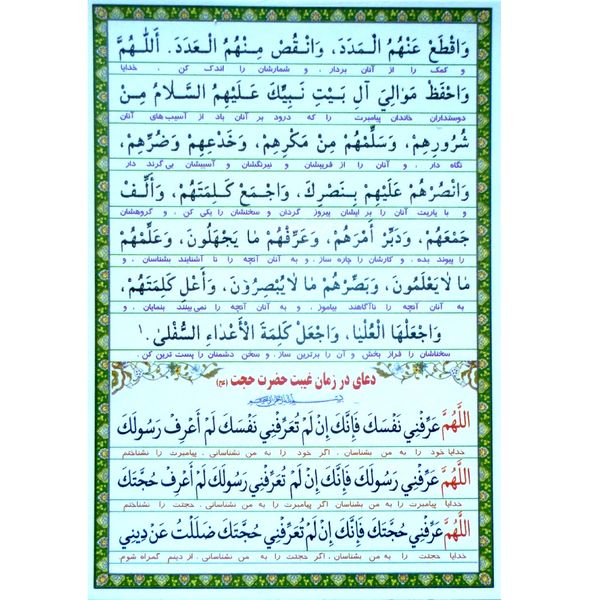 وَاقْطَعْ عَنْهُمُ الْمَدَدَ، وَانْقُصْ مِنْهُمُ الْعَدَدَ. أَللّٰهُمَّ
و کمک را از آنان بردار . و شمارشان را اندک کن . خدایا
وَاحْفَظْ مَوٰالِيَ آلِ بَيْتِ نَبِيِّكَ عَلَيْهِمُ السَّلٰامُ مِنْ
دوستداران خاندان پیامبرت را که درود بر آنان باد از آسیب های آنان
شُرُورِهِمْ، وَسَلِّمْهُمْ مِنْ مَكْرِهِمْ، وَخَدْعِهِمْ وَضُرِّهِمْ،
نگاه دار . و آنان را از فریبشان و نیرنگشان و آسیبشان بی گزند دار
وَانْصُرْهُمْ عَلَيْهِمْ بِنَصْرِكَ، وَاجْمَعْ كَلِمَتَهُمْ، وَأَلِّفْ
و با یاریت آنان را بر ایشان پیروز گردان و سخنشان را یکی کن . و گروهشان
جَمْعَهُمْ، وَدَبِّرْ أَمْرَهُمْ، وَعَرِّفْهُمْ مٰا يَجْهَلُونَ، وَعَلِّمْهُمْ
را پیوند بده . و کارشان را چاره ساز . و به آنان آنچه را نا آشنایند بشناسان . و
مٰا لٰا يَعْلَمُونَ، وَبَصِّرْهُمْ مٰا لٰا يُبْصِرُونَ، وَأَعْلِ كَلِمَتَهُمْ،
به آنان آنچه را ناآگاهند بیاموز . و به آنان آنچه را نمی بینند بنمایان . و
وَاجْعَلْهَا الْعُلْيٰا، وَاجْعَلْ كَلِمَةَ الْأَعْدٰاءِ السُّفْلىٰ. ١
سخناشان را فراز بخش و آن را برترین ساز . و سخن دشمنان را پست ترین کن .
دعای در زمان غیبت حضرت حجت (عج)
بسم الله الرحمن الرحیم
اللَّهُمَّ عَرِّفْنِي نَفْسَكَ فَإِنَّكَ إِنْ لَمْ تُعَرِّفْنِي نَفْسَكَ لَمْ أَعْرِفْ رَسُولَكَ
خدایا خود را به من بشناسان . اگر خود را به من نشناسانی . پیامبرت را نشناختم
اللَّهُمَّ عَرِّفْنِي رَسُولَكَ فَإِنَّكَ إِنْ لَمْ تُعَرِّفْنِي رَسُولَكَ لَمْ أَعْرِفْ حُجَّتَكَ
خدایا پیامبرت را به من بشناسان اگر پیامبرت را به من نشناسانی . حجتت را نشناختم
اللَّهُمَّ عَرِّفْنِي حُجَّتَكَ فَإِنَّكَ إِنْ لَمْ تُعَرِّفْنِي حُجَّتَكَ ضَلَلْتُ عَنْ دِينِي
خدایا حجتت را به من بشناسان . اگر حجتت را به من نشناسانی . از دینم گمراه شوم.